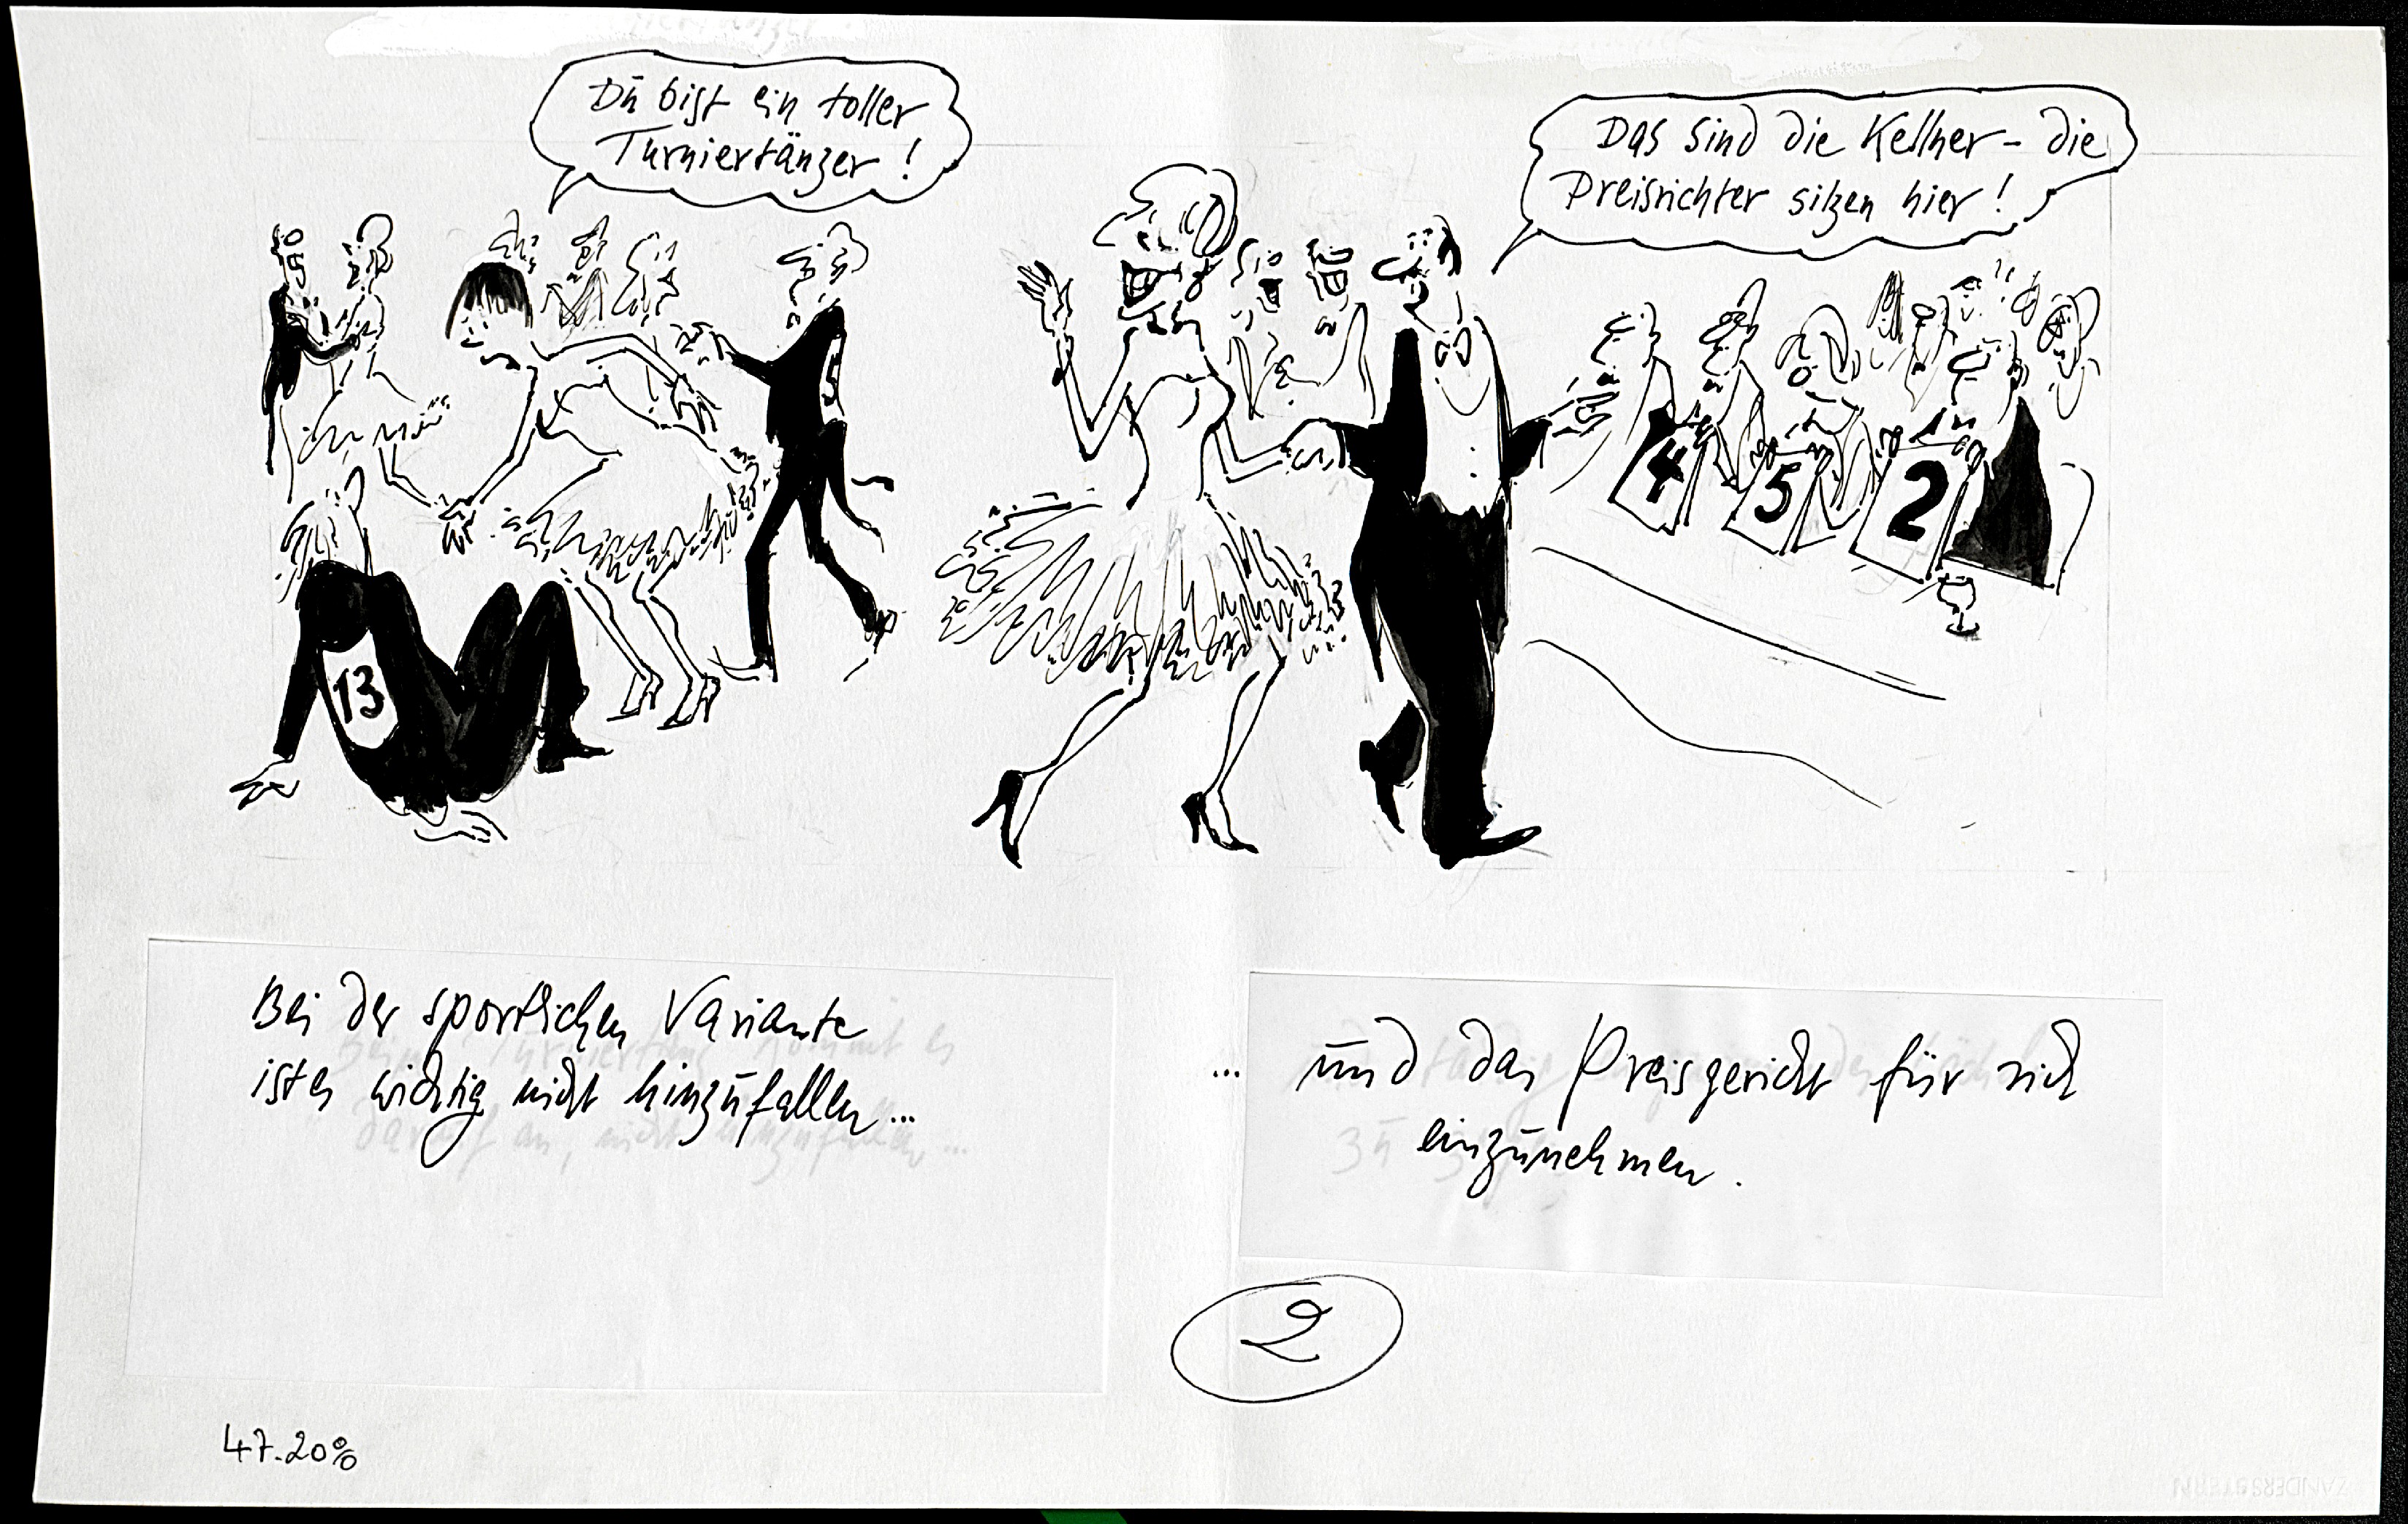 Dū bist ein toller
Turniertänzer !
Das sind die Kellner - die
Preisrichter sitzen hier !
5
13
4
5
2
Bei der sportlichen Variante
ist es wichtig nicht hinzūfallen ...
... ūnd das Preisgericht für sich
einzūnehmen .
2
47.20%
ZANDERS